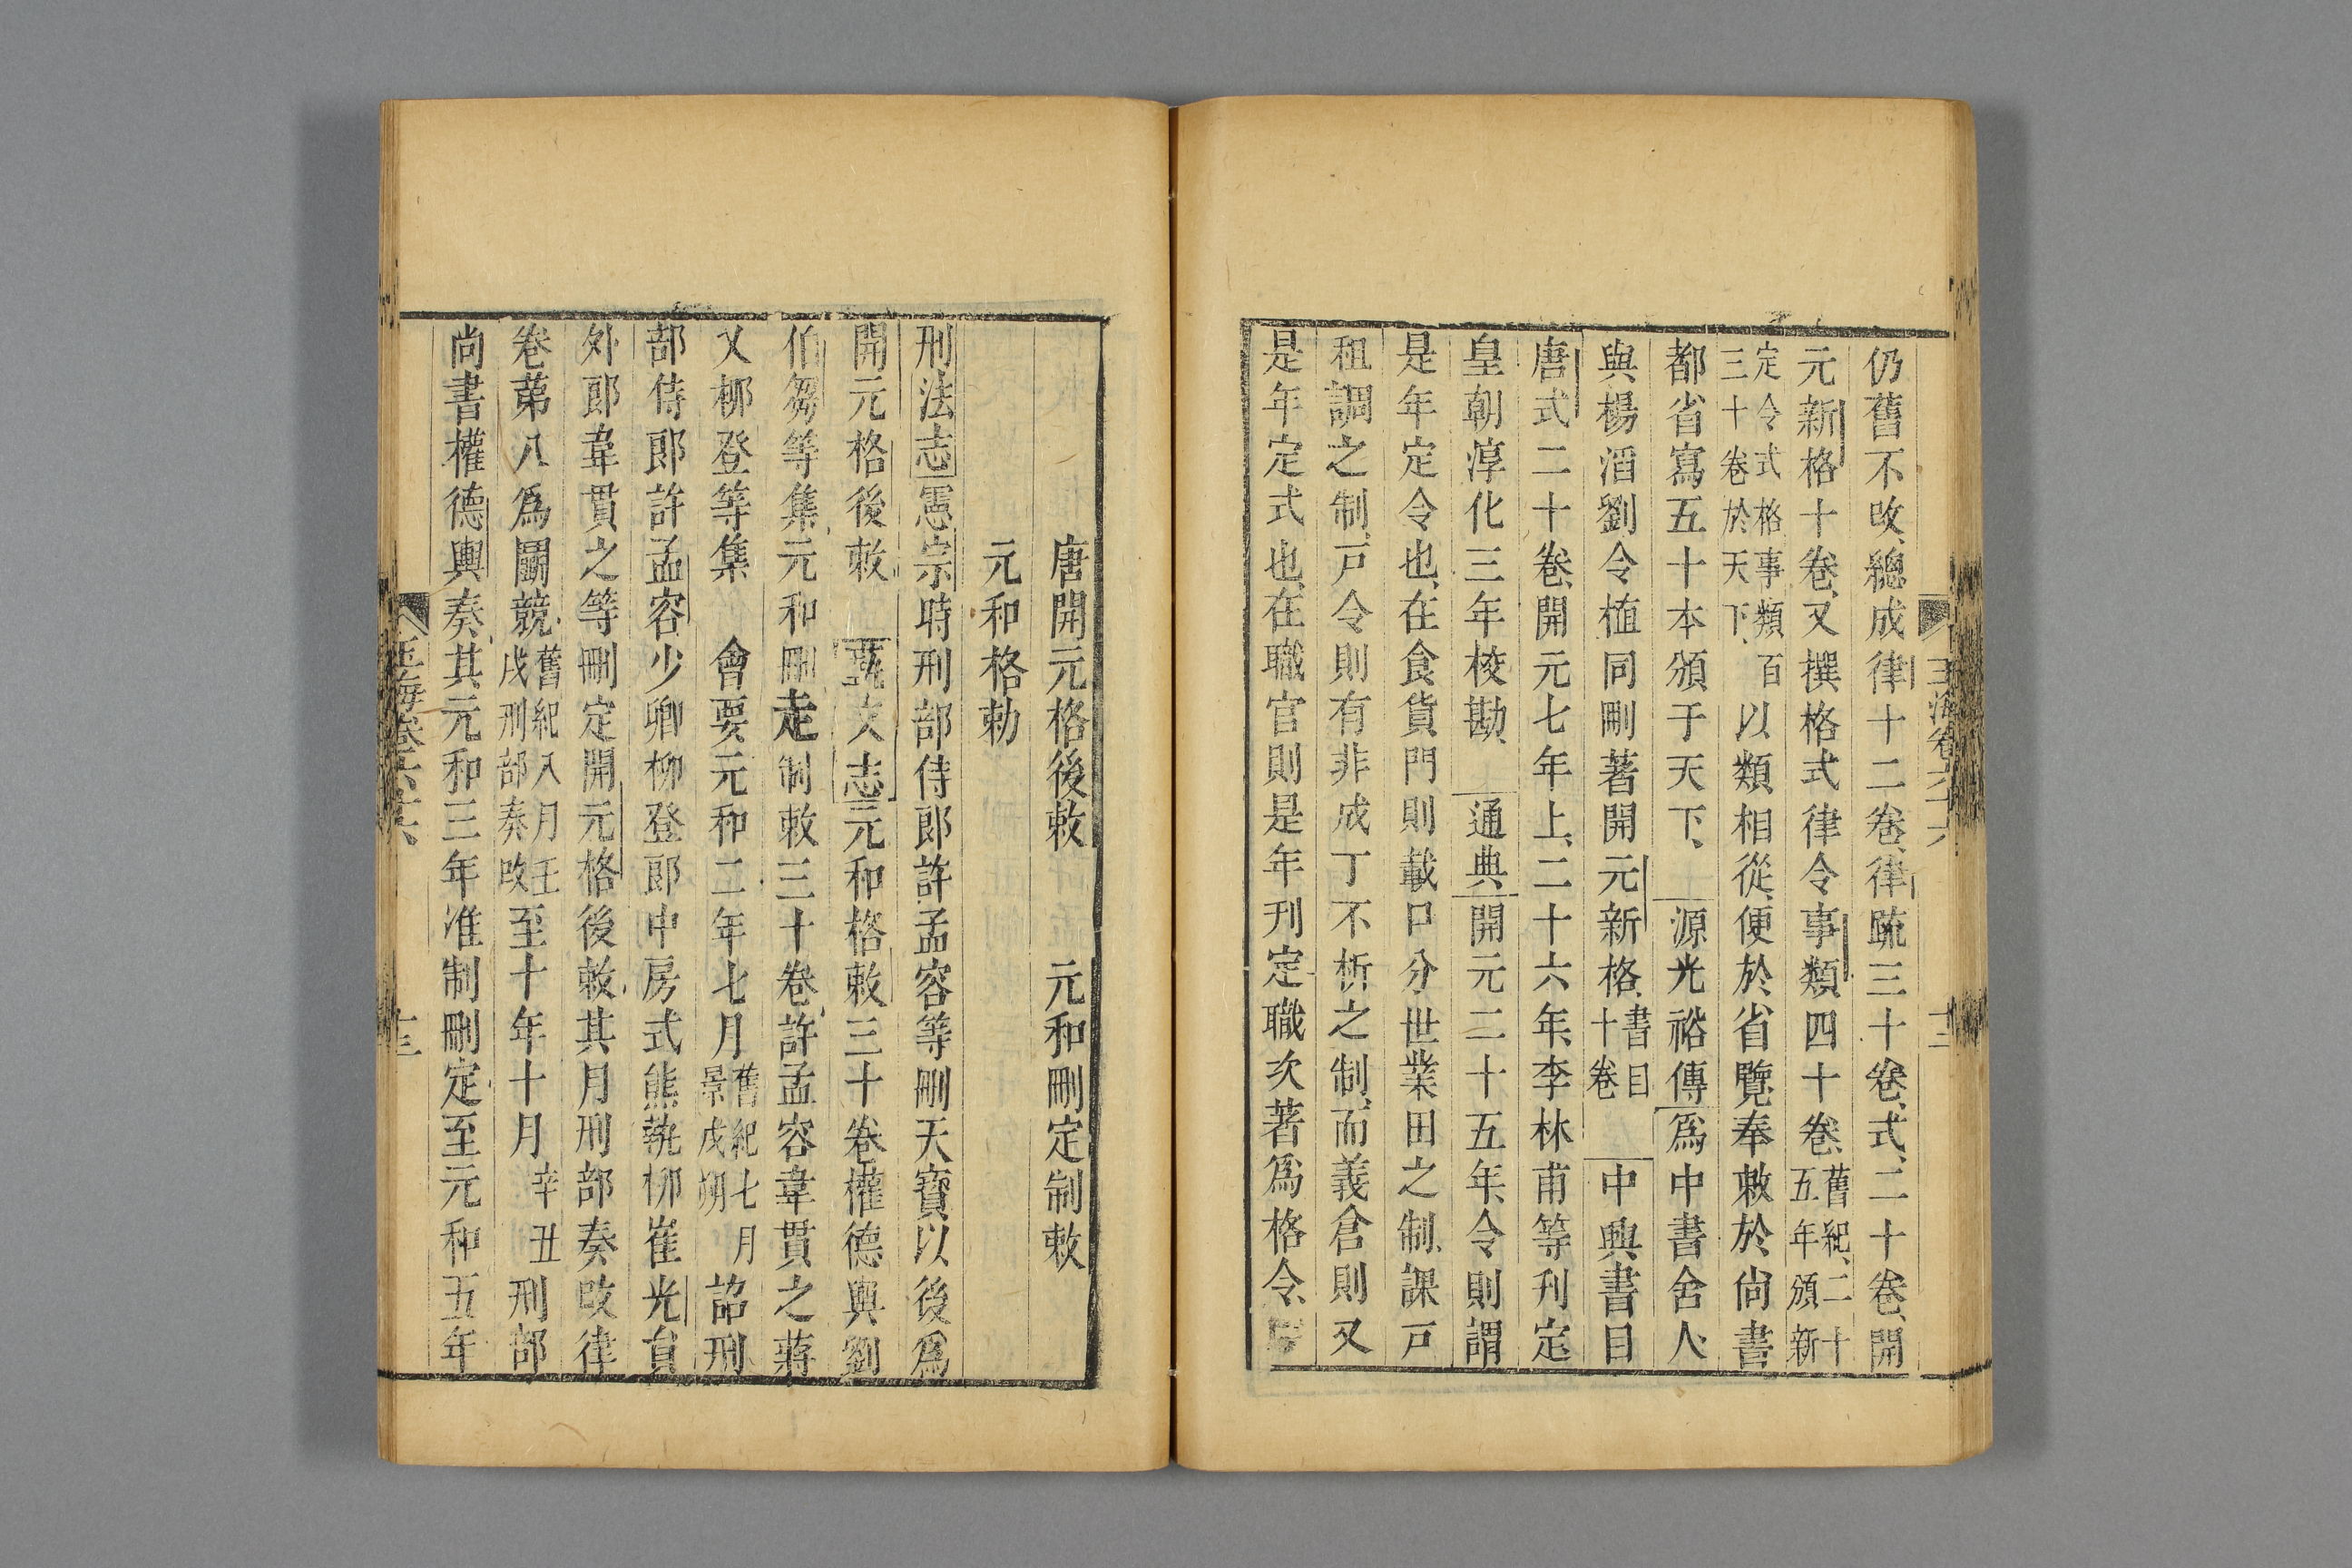 玉海卷六十六 十二
仍舊不改總成律十二卷律疏三十卷式二十卷開
元新格十卷又撰格式律令事類四十卷舊紀二十五年頒新
定令式格事類百三十卷於天下以類相從便於省覽奉敕於尚書
都省寫五十本頒于天下源光裕傳爲中書舍人
與楊滔劉令植同刪著開元新格書目十卷中興書目
唐式二十卷開元七年上二十六年李林甫等刋定
皇朝淳化三年校勘通典開元二十五年令則謂
是年定令也在食貨門則載口分世業田之制課戸
租調之制戸令則有非成丁不析之制而義倉則又
是年定式也在職官則是年刋定職次著爲格令
唐開元格後敕 元和刪定制敕
元和格勅
刑法志憲宗時刑部侍郎許孟容等刪天寶以後爲
開元格後敕藝文志元和格敕三十卷權德輿劉
伯芻等集元和刪定制敕三十卷許孟容韋貫之蔣
乂柳登等集會要元和二年七月舊紀七月景戌朔詔刑
部侍郎許孟容少卿柳登郎中房式熊執柳崔光員
外郎韋貫之等刪定開元格後敕其月刑部奏改律
卷第八爲鬭競舊紀八月壬戌刑部奏改至十年十月辛丑刑部
尚書權德輿奏其元和三年准制刪定至元和五年
玉海卷六十六 十三